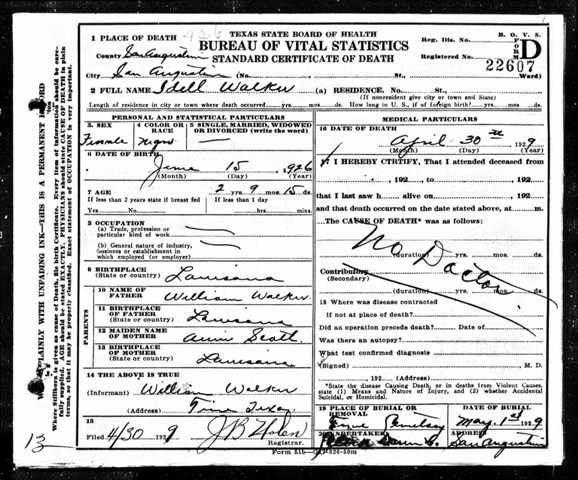 TEXAS STATE BOARD OF HEALTH
BUREAU OF VITAL STATISTICS
STANDARD CERTIFICATE OF DEATH
B. O. V. S.
FORM D
Reg. Dis. No.
Registered No. 22607
1 PLACE OF DEATH
County San Augustine
City San Augustine No. St., Ward)
2 FULL NAME Idell Walker (a) RESIDENCE. No. St.,
(If nonresident give city or town and State)
Length of residence in city or town where death occurred yrs. mos. ds. How long in U. S., if of foreign birth? yrs. mos. ds.
PERSONAL AND STATISTICAL PARTICULARS
3. SEX
Female
4 COLOR OR RACE
Negro
5 SINGLE, MARRIED, WIDOWED OR DIVORCED (write the word)
6 DATE OF BIRTH
June 15 1926
(Month) (Day) (Year)
7 AGE 2 yrs. 9 mos. 15 ds.
If less than 2 years state if breast fed
Yes No
If less than 1 day
hrs. min.
8 OCCUPATION
(a) Trade, profession or particular kind of work
(b) General nature of industry, business or establishment in which employed (or employer)
9 BIRTHPLACE
(State or country) Louisiana
PARENTS
10 NAME OF FATHER William Walker
11 BIRTHPLACE OF FATHER
(State or country) Louisiana
12 MAIDEN NAME OF MOTHER Annie Scott
13 BIRTHPLACE OF MOTHER
(State or country) Louisiana
14 THE ABOVE IS TRUE
(Informant) William Walker
(Address) Texas
15
Filed 4/30 1929
Registrar.
MEDICAL PARTICULARS
16 DATE OF DEATH
April 30th 1929
(Month) (Day) (Year)
17 I HEREBY CERTIFY, That I attended deceased from
192 , to 192
that I last saw h alive on 192
and that death occurred on the date stated above, at m.
The CAUSE OF DEATH* was as follows:
No Doctor
(duration) yrs. mos. ds.
Contributory
(Secondary)
(duration) yrs. mos. ds.
18 Where was disease contracted
if not at place of death?
Did an operation precede death? Date of
Was there an autopsy?
What test confirmed diagnosis
(Signed) M. D.
192 (Address)
*State the disease Causing Death, or in deaths from Violent Causes, state (1) Means and Nature of Injury, and (2) whether Accidental Suicidal, or Homicidal.
19 PLACE OF BURIAL OR REMOVAL
DATE OF BURIAL
May 1st 1929
20 UNDERTAKER
San Augustine
13